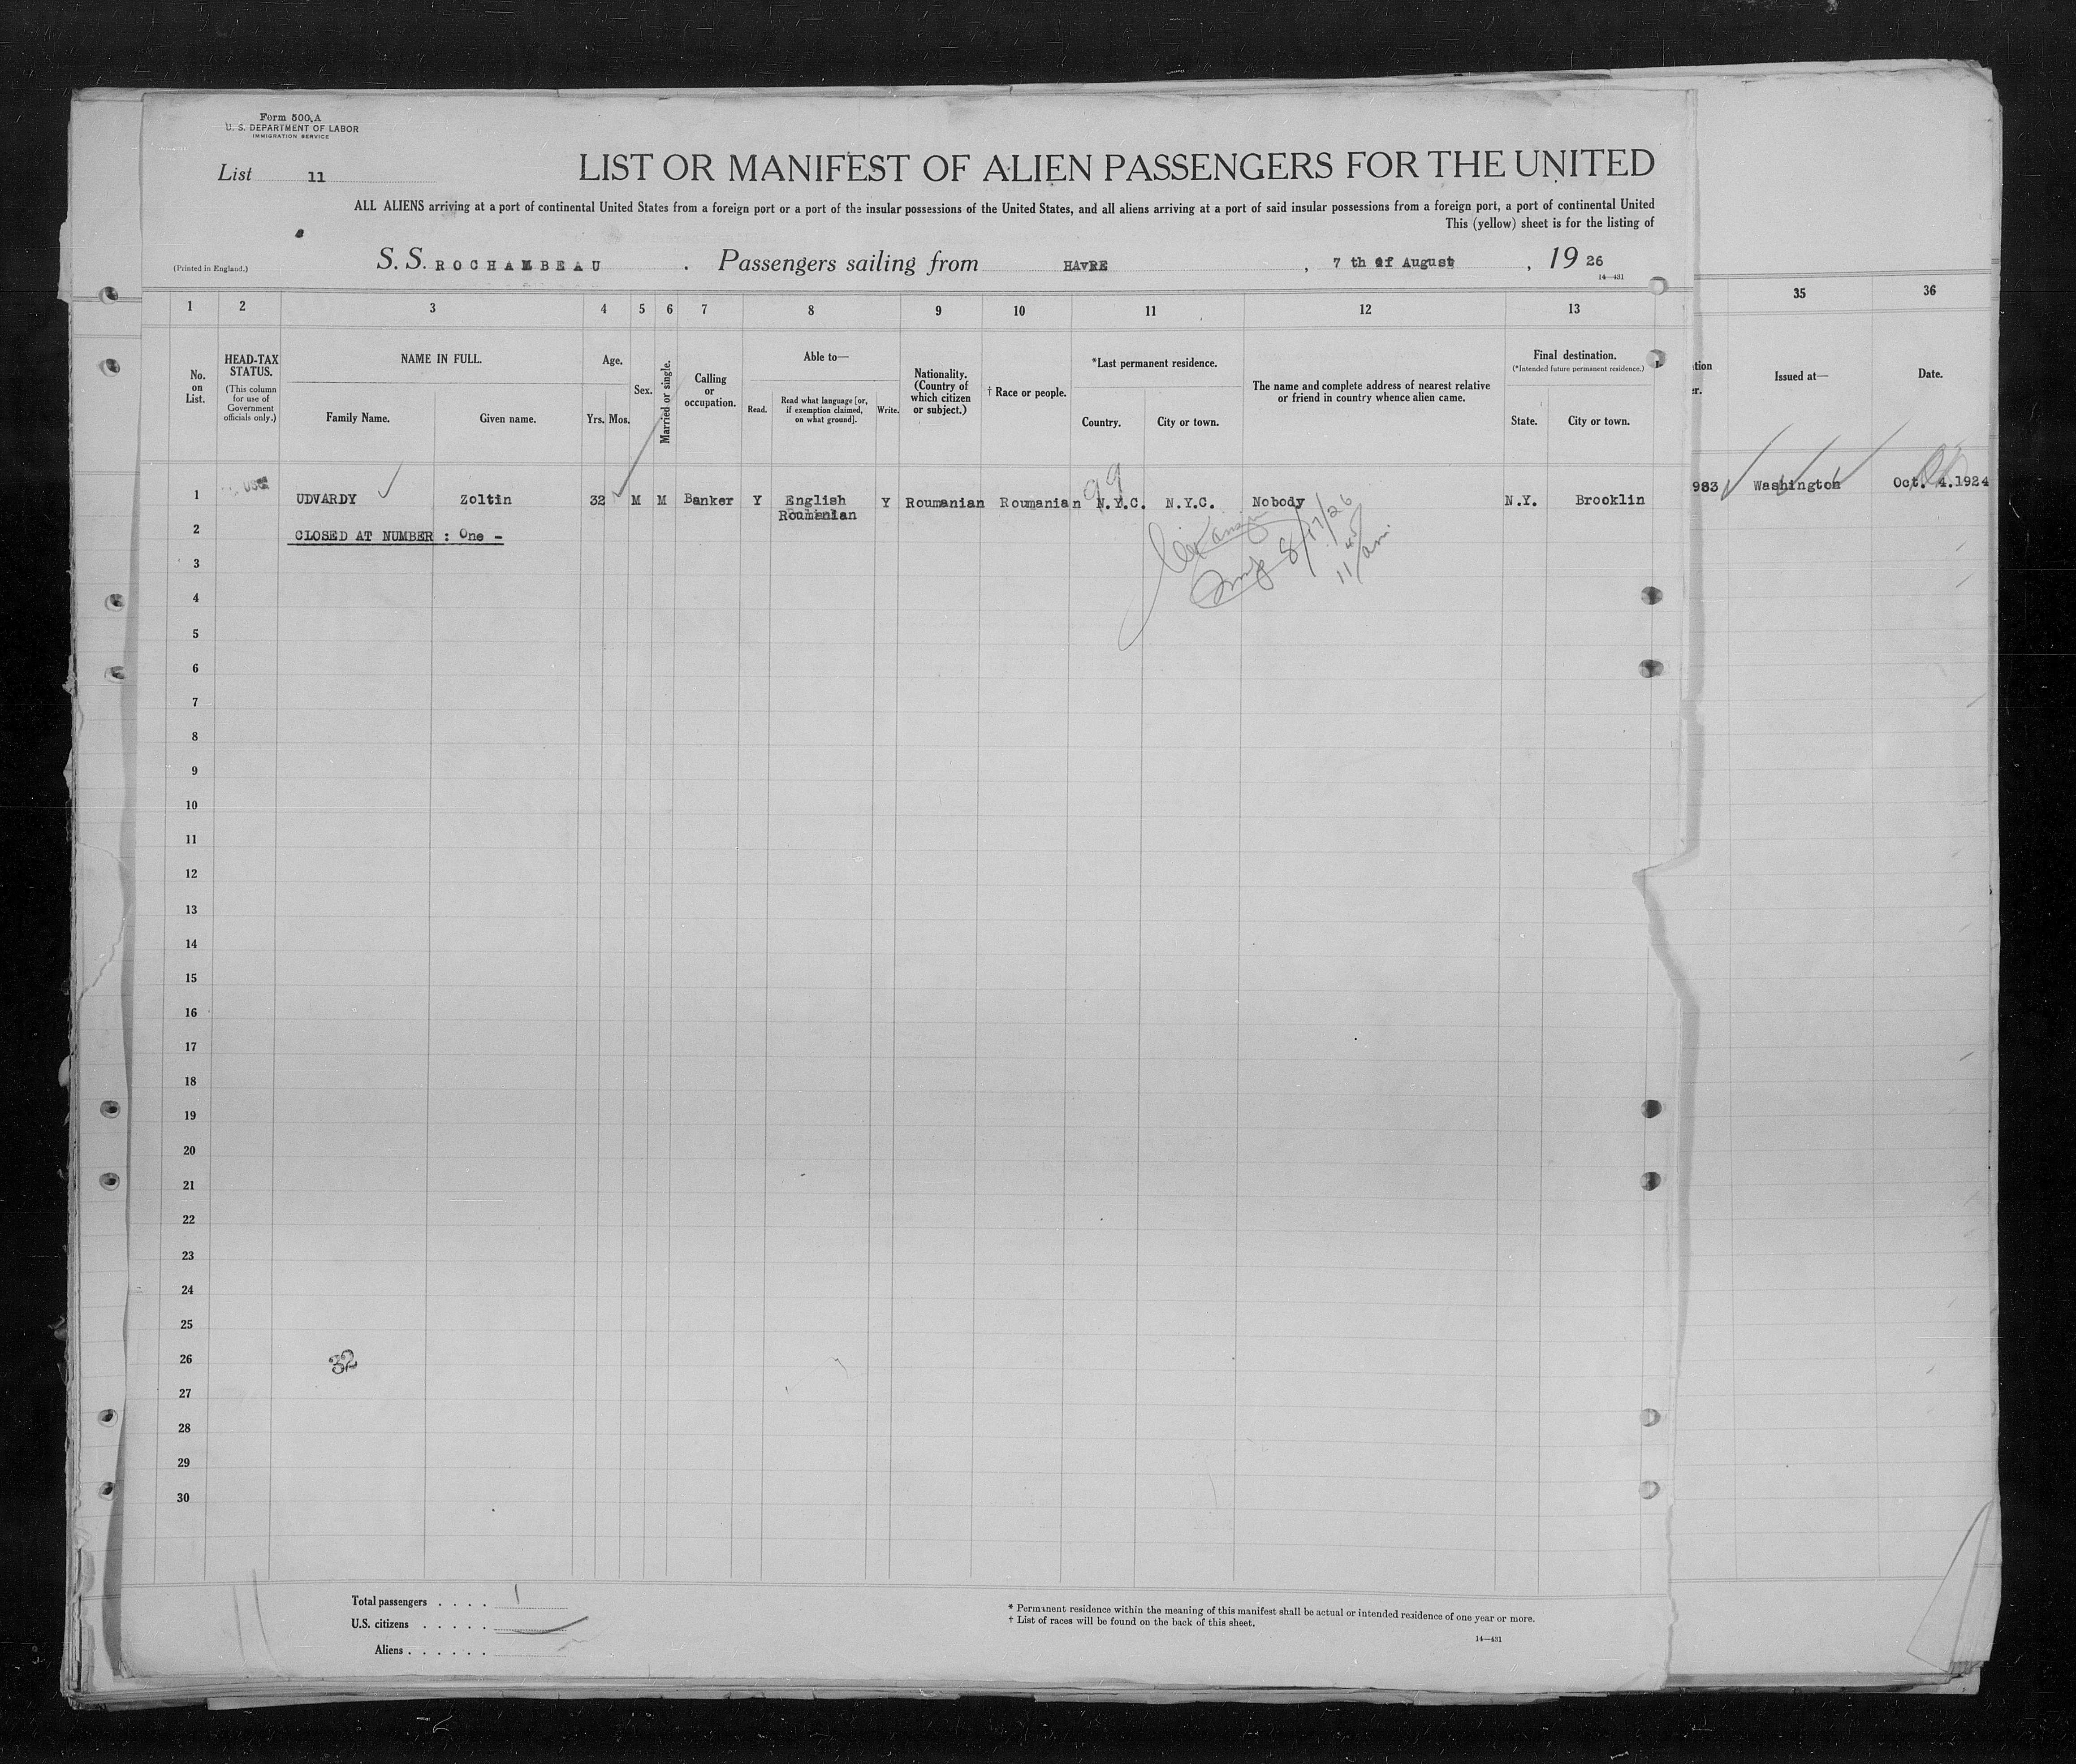 Form 500.A
U. S. DEPARTMENT OF LABOR
IMMIGRATION SERVICE
List 11
LIST OR MANIFEST OF ALIEN PASSENGERS FOR THE UNITED
ALL ALIENS arriving at a port of continental United States from a foreign port or a port of the insular possessions of the United States, and all aliens arriving at a port of said insular possessions from a foreign port, a port of continental United
This (yellow) sheet is for the listing of
(Printed in England.)
S. S. ROCHAMBEAU . Passengers sailing from HAVRE , 7 th of August , 19 26
14—431
1 2 3 4 5 6 7 8 9 10 11 12 13 35 36
No. on List.
HEAD-TAX STATUS.
(This column for use of Government officials only.)
NAME IN FULL.
Family Name. Given name.
Age.
Yrs. Mos.
Sex.
Married or single.
Calling or occupation.
Able to—
Read. Read what language [or, if exemption claimed, on what ground]. Write.
Nationality. (Country of which citizen or subject.)
† Race or people.
*Last permanent residence.
Country. City or town.
The name and complete address of nearest relative or friend in country whence alien came.
Final destination.
(*Intended future permanent residence.)
State. City or town.
tion
er.
Issued at—
Date.
1 USC UDVARDY Zoltin 32 M M Banker Y English Y Roumanian Roumanian N.Y.C. N.Y.C. Nobody N.Y. Brooklin 983 Washington Oct. 4.1924
Roumanian
99
2 CLOSED AT NUMBER : One -
8/17/26
11 45 am
3
4
5
6
7
8
9
10
11
12
13
14
15
16
17
18
19
20
21
22
23
24
25
26
32
27
28
29
30
Total passengers . . . . 1
U.S. citizens . . . . .
Aliens . . . . . .
* Permanent residence within the meaning of this manifest shall be actual or intended residence of one year or more.
† List of races will be found on the back of this sheet.
14—431